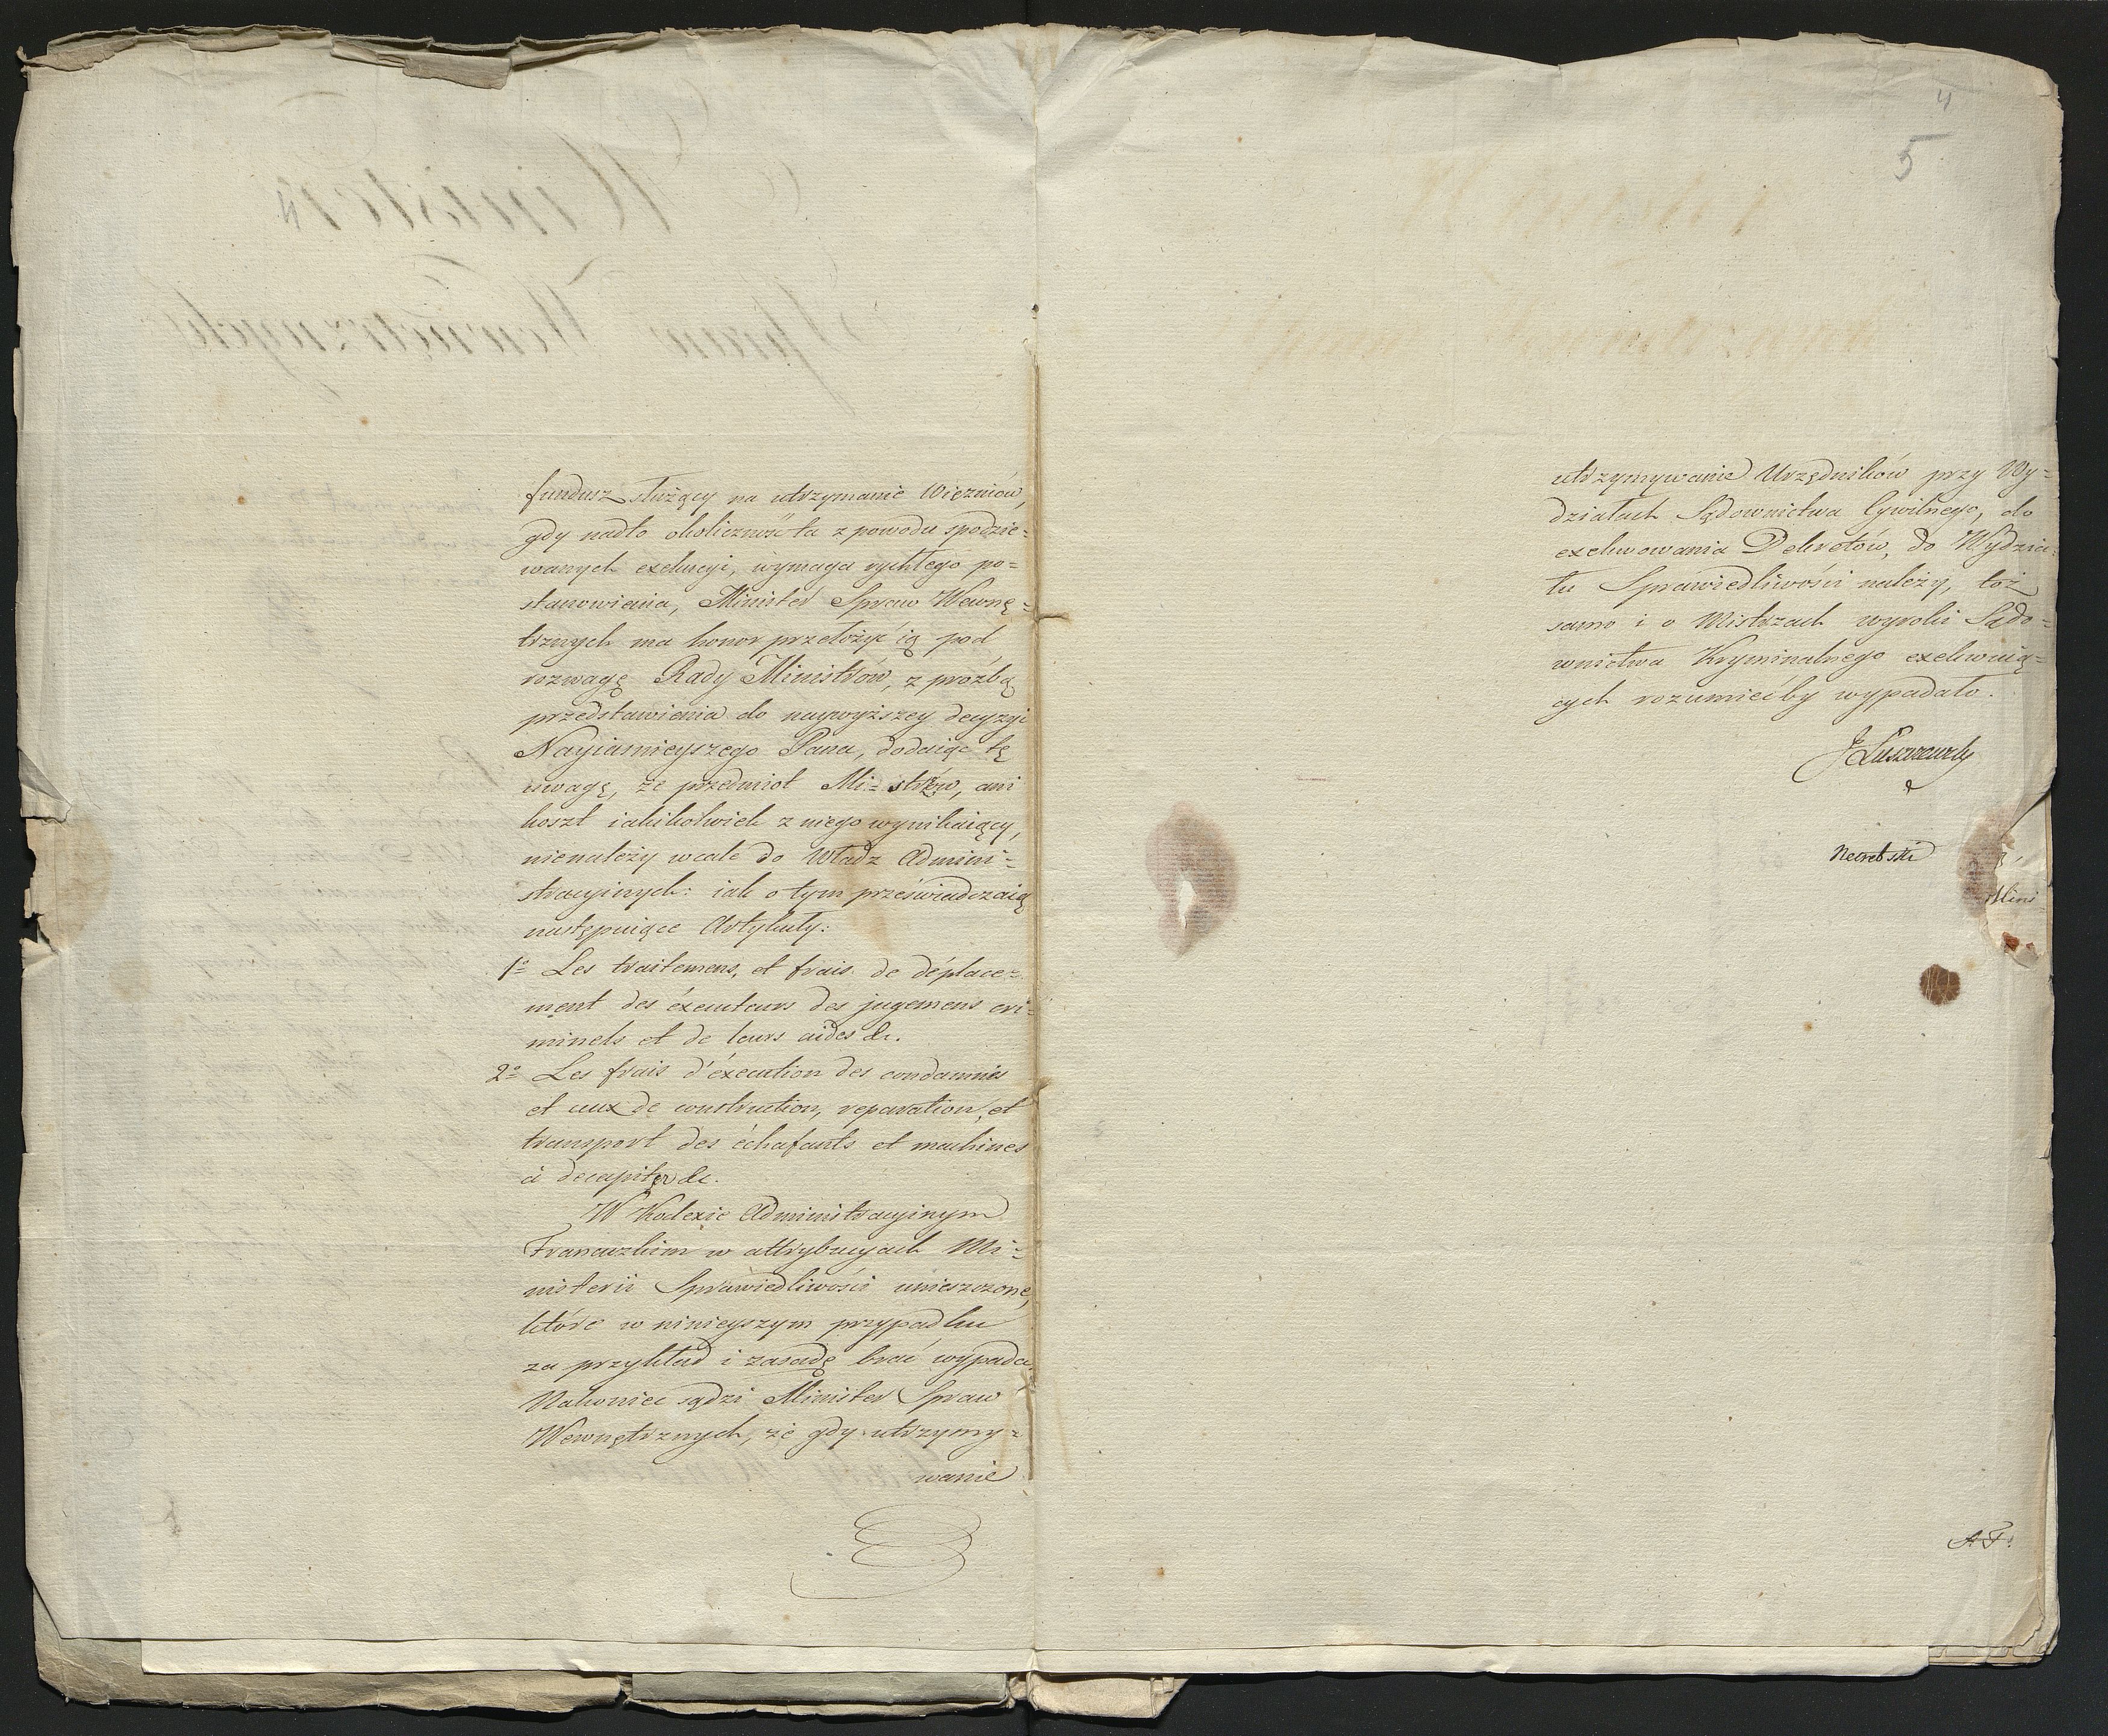 fundusz służący na utrzymanie Więzniów,
gdy nadto okoliczność ta z powodu spodzie=
wanych exekucyi, wymaga rychłego po=
stanowienia, Minister Spraw Wewnę=
trznych ma honor przełożyć ią pod
rozwagę Rady Ministrów, z proźbą
przedstawienia do naywyższey decyzyi
Nayiaśnieyszego Pana, dodaiąc tę
uwagę, że przedmiot Mi=strzów, ani
koszt iakikolwiek z niego wynikaiący,
nienależy wcale do Władz Admini=
stracyinych: iak o tym przeświadczaią
następuiące Artykuły:
1º Les traitemens, et frais de déplace=
ment des éxecuteurs des jugemens cri=
minels et de leurs aides &c.
2º Les frais d'éxecution des condamnés
et ceux de construction, reparation, et
transport des échafauts et machines
à decapiter &c.
W Kodexie Administracyinym
Francuzkim w attrybucyach Mi=
nisterii Sprawiedliwości umieszczone,
które w ninieyszym przypadku
za przykład i zasadę brać wypada.
Nakoniec sądzi Minister Spraw
Wewnętrznych, że gdy utrzymy=
wanie
4
5
utrzymywanie Urzędników przy Wy=
działach Sądownictwa Cywilnego, do
exekwowania Dekretów, do Wydzia=
łu Sprawiedliwości należy, toż
samo i o Mistrzach wyroki Sądo=
wnictwa Kryminalnego exekwuią=
cych rozumiećby wypadało.
J Łuszczewsky
Mini